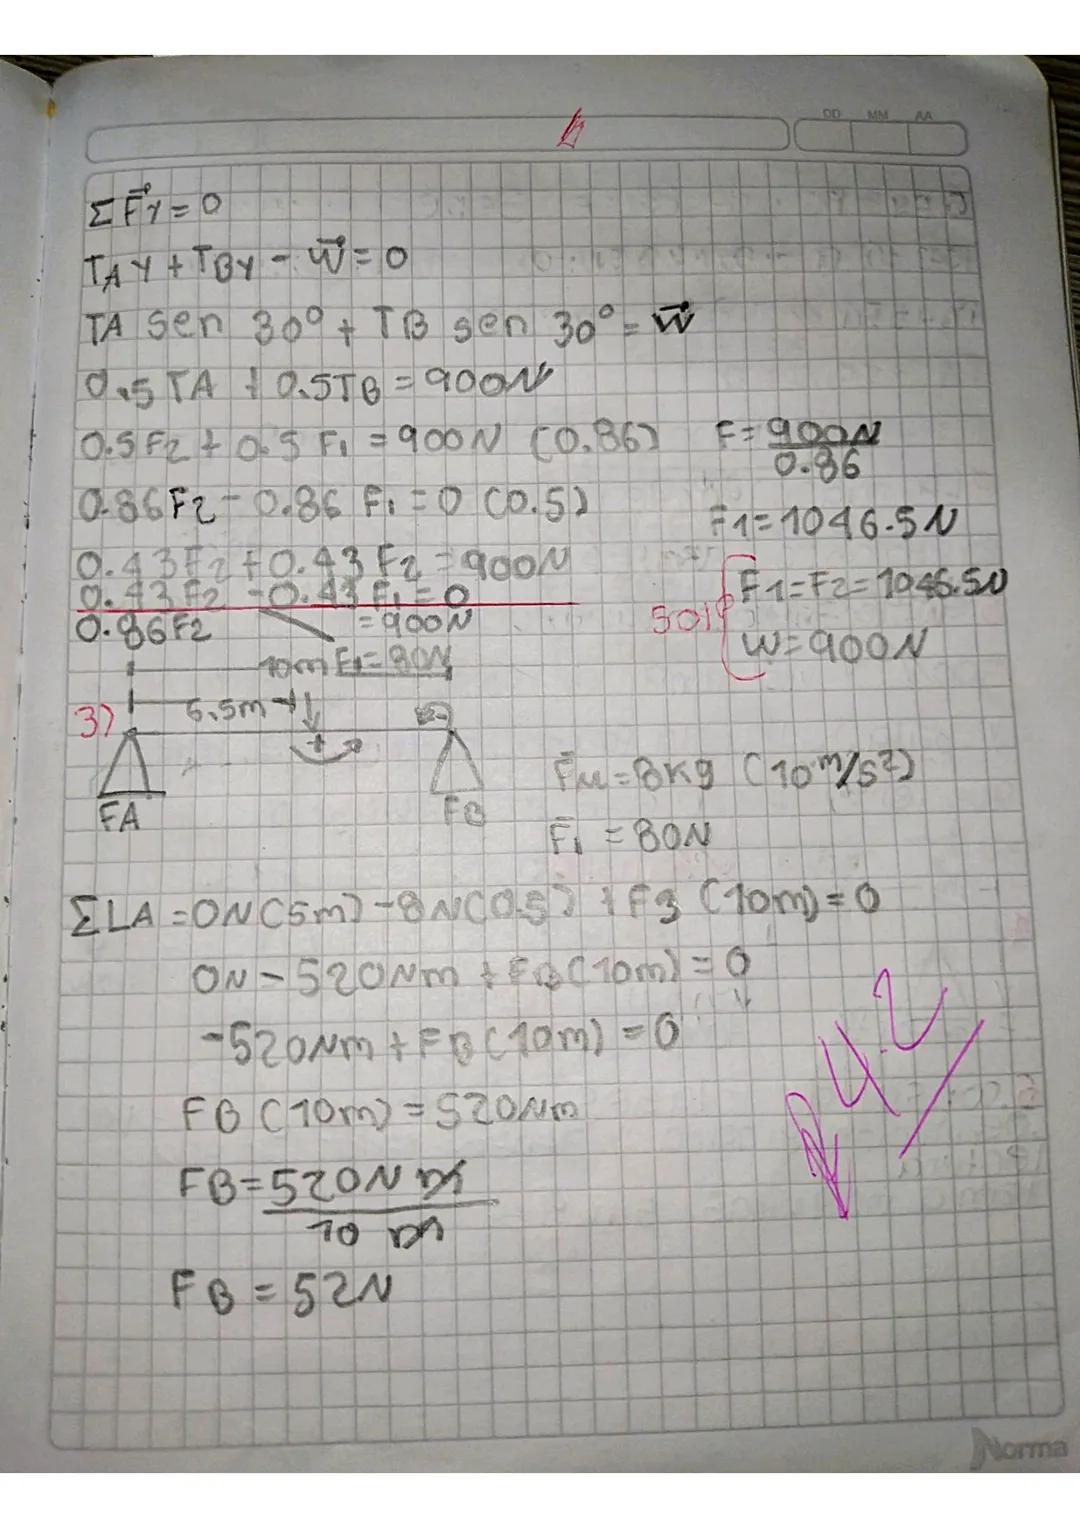 DD MM AA
ΣF⃗y = 0
TAY + TBY - W⃗ = 0
TA sen 30° + TB sen 30° = W⃗
0.5 TA + 0.5TB = 900N
0.5F2 + 0.5 F1 = 900N (0.86)
F = 900N / 0.86
0.86F2 - 0.86 F1 = 0 (0.5)
F1 = 1046.5N
0.43F2 + 0.43F2 = 900N
0.43F2 - 0.43F1 = 0
F1 = F2 = 1046.5N
0.86F2 = 900N
sol
W = 900N
10m F1 = 80N
6.5m
3)
+
FA
FB
F⃗u = 8Kg (10 m/s²)
F⃗1 = 80N
ΣLA = 0N(5m) - 8N(0.5) + F3 (10m) = 0
0N - 520Nm + FB(10m) = 0
-520Nm + FB(10m) = 0
FB (10m) = 520Nm
FB = 520N m
10 m
FB = 52N
4.2
Norma